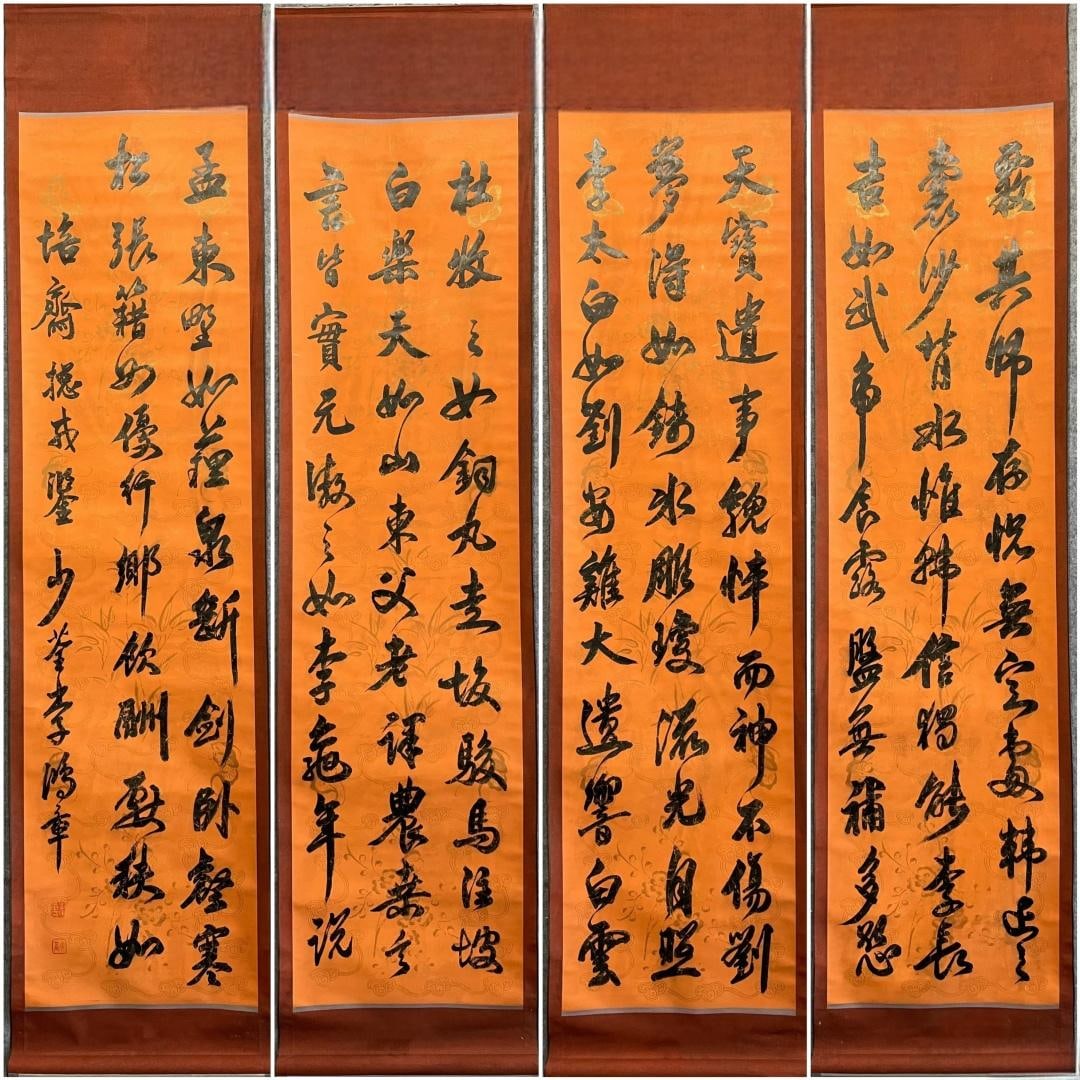 杜牧之如銅丸走坂駿馬注坡
白樂天如山東父老課農桑言
言皆實元微之如李龜年説
天寶遺事貌悴而神不傷劉
夢得如鏤冰雕瓊流光自照
李太白如劉安雞犬遺響白雲
覈其歸存恍無定處韓退之
囊沙背水惟韓信獨能李長
吉如武帝食露盤無補多慾
孟東野如薶泉斷劍臥壑寒
松張籍如優行鄉飲酬獻秩如
培齋總戎鑒 少荃李鴻章